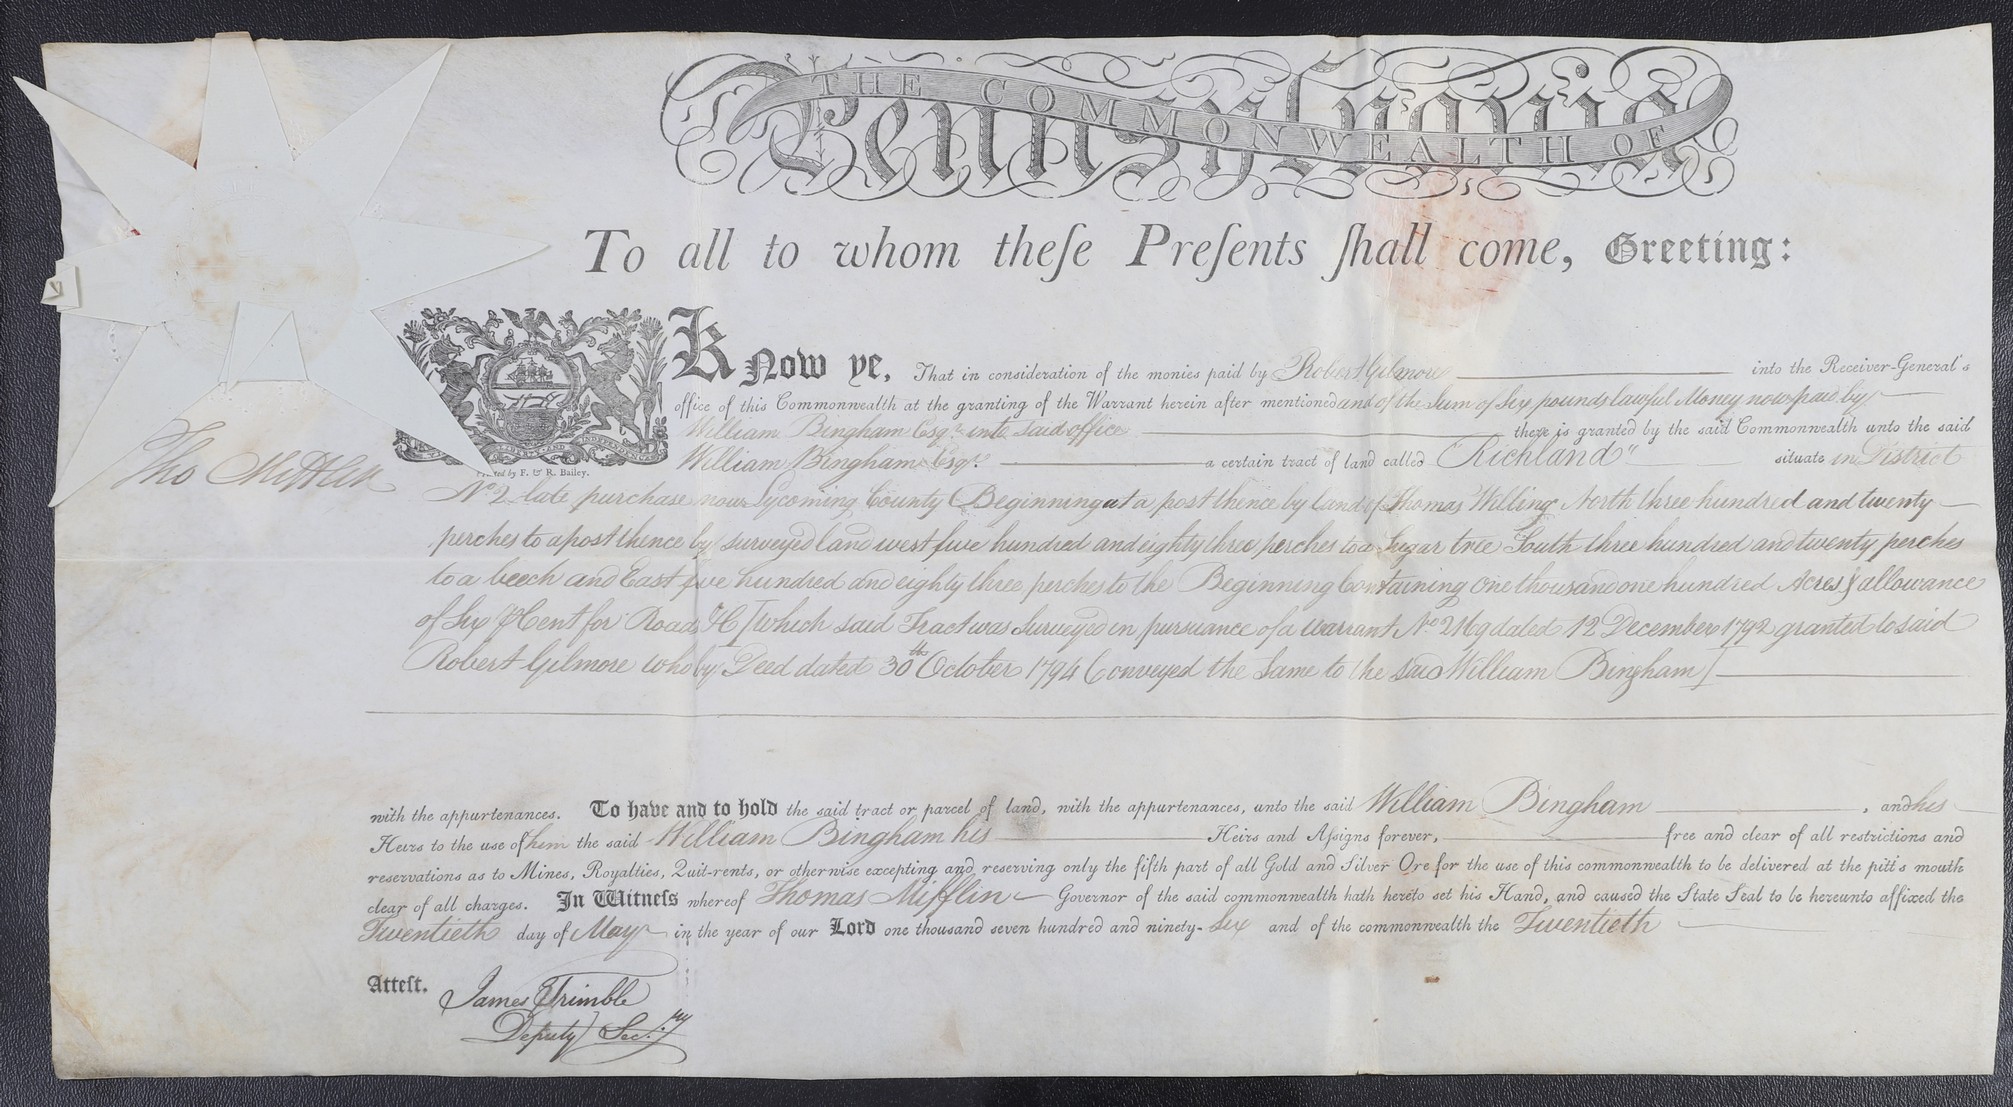 THE COMMONWEALTH OF
Pennsylvania
To all to whom theſe Preſents ſhall come, Greeting:
Know ye, That in conſideration of the monies paid by Robert Gilmore into the Receiver-General's
office of this Commonwealth at the granting of the Warrant herein after mentioned and of the Sum of Six pounds lawful Money now paid by
William Bingham Esqr. into Said office there is granted by the said Commonwealth unto the said
William Bingham Esqr. a certain tract of land called "Richland" situate in District
Printed by F. & R. Bailey.
Tho Mifflin
No. 2 late purchase now Lycoming County Beginning at a post thence by land of Thomas Willing North three hundred and twenty
perches to a post thence by surveyed land west five hundred and eighty three perches to a Sugar tree South three hundred and twenty perches
to a beech and East five hundred and eighty three perches to the Beginning Containing One thousand one hundred Acres & allowance
of Six P Cent for Roads &c [which said Tract was Surveyed in pursuance of a Warrant No 2169 dated 12 December 1792 granted to said
Robert Gilmore who by Deed dated 30th October 1794 Conveyed the Same to the said William Bingham]
with the appurtenances. To have and to hold the said tract or parcel of land, with the appurtenances, unto the said William Bingham, and his
Heirs to the use of him the said William Bingham his Heirs and Aſsigns forever, free and clear of all restrictions and
reservations as to Mines, Royalties, Quit-rents, or otherwise excepting and reserving only the fifth part of all Gold and Silver Ore for the use of this commonwealth to be delivered at the pitt's mouth
clear of all charges. In Witneſs whereof Thomas Mifflin Governor of the said commonwealth hath hereto set his Hand, and caused the State Seal to be hereunto affixed the
Twentieth day of May in the year of our Lord one thousand seven hundred and ninety-Six and of the commonwealth the Twentieth
Atteſt.
James Trimble
Deputy Sec.ry